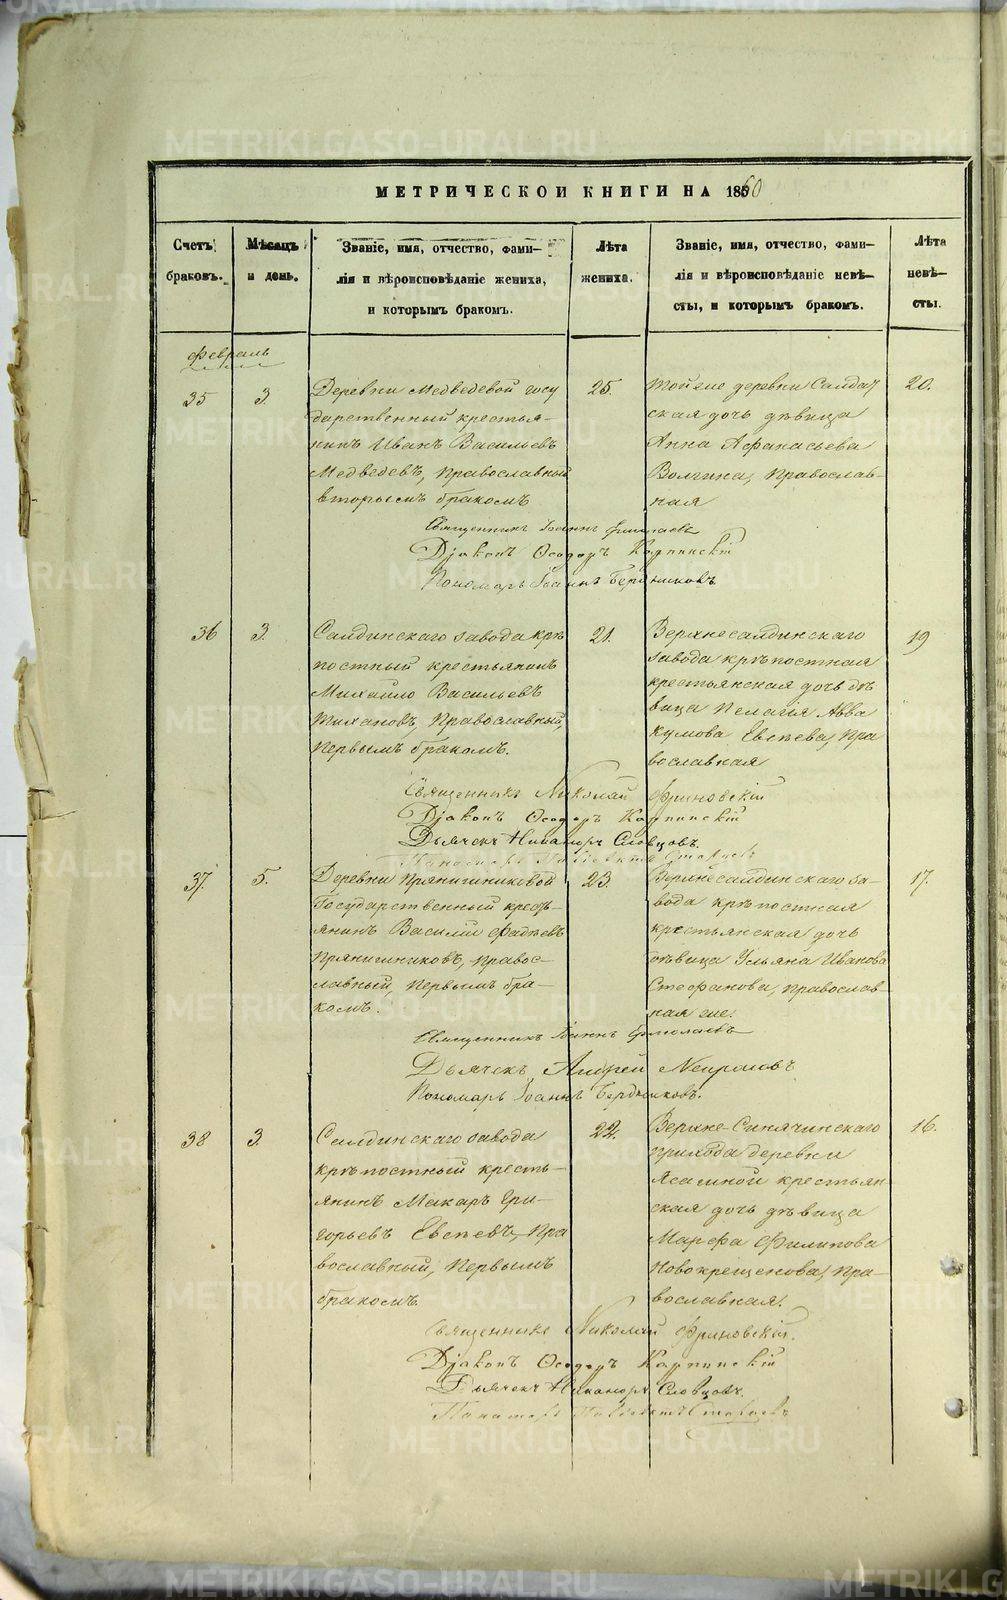 МЕТРИЧЕСКОЙ КНИГИ НА 1860
Счетъ браковъ.
Мѣсяцъ и день.
Званіе, имя, отчество, фами-
лія и вѣроисповѣданіе жениха,
и которымъ бракомъ.
Лѣта жениха.
Званіе, имя, отчество, фами-
лія и вѣроисповѣданіе невѣ-
сты, и которымъ бракомъ.
Лѣта невѣ-
сты.
Февраль
35
3.
Деревни Медведевой госу
дарственный крестья-
нинъ Иванъ Васильевъ
Медведевъ, Православный
вторымъ бракомъ
25.
Той же деревни Салдат
ская дочь дѣвица
Анна Афанасьева
Волгина, Православ-
ная
20.
Священникъ Іоаннъ
Дiаконъ Ѳеодоръ Карпинскій
Пономарь Іоаннъ Бердниковъ
36
3.
Салдинскаго завода крѣ
постный крестьянинъ
Михайло Васильевъ
Тихановъ, Православный,
Первымъ бракомъ.
21.
Верхнесалдинскаго
завода крѣпостная
крестьянская дочь дѣ
вица Пелагія Авва
кумова Евсѣева, Пра
вославная
19
Священникъ Николай Фриновскій
Дiаконъ Ѳеодоръ Карпинскій
Дьячекъ Никаноръ Словцовъ.
37.
5.
Деревни Прянишниковой
Государственный крест-
янинъ Василій Фадѣевъ
Прянишниковъ, Правос-
лавный, Первымъ бра-
комъ.
23.
Верхнесалдинскаго за-
вода крѣпостная
крестьянская дочь
дѣвица Ульяна Иванова
Стефанова, Православ-
ная же.
17.
Священникъ Іоаннъ Ермолаевъ
Дьячекъ Андрей
Пономарь Іоаннъ Бердниковъ.
38
3.
Салдинскаго завода
крѣпостный кресть-
янинъ Макаръ Гри-
горьевъ Евсѣевъ, Пра
вославный, Первымъ
бракомъ.
22.
Верхне-Синячинскаго
прихода деревни
Ясашной крестьян-
ская дочь дѣвица
Марфа Филипова
Новокрещенова, Пра-
вославная.
16.
Священникъ Николай Фриновскій.
Дiаконъ Ѳеодоръ Карпинскій
Дьячекъ Никаноръ Словцовъ.
METRIKI.GASO-URAL.RU